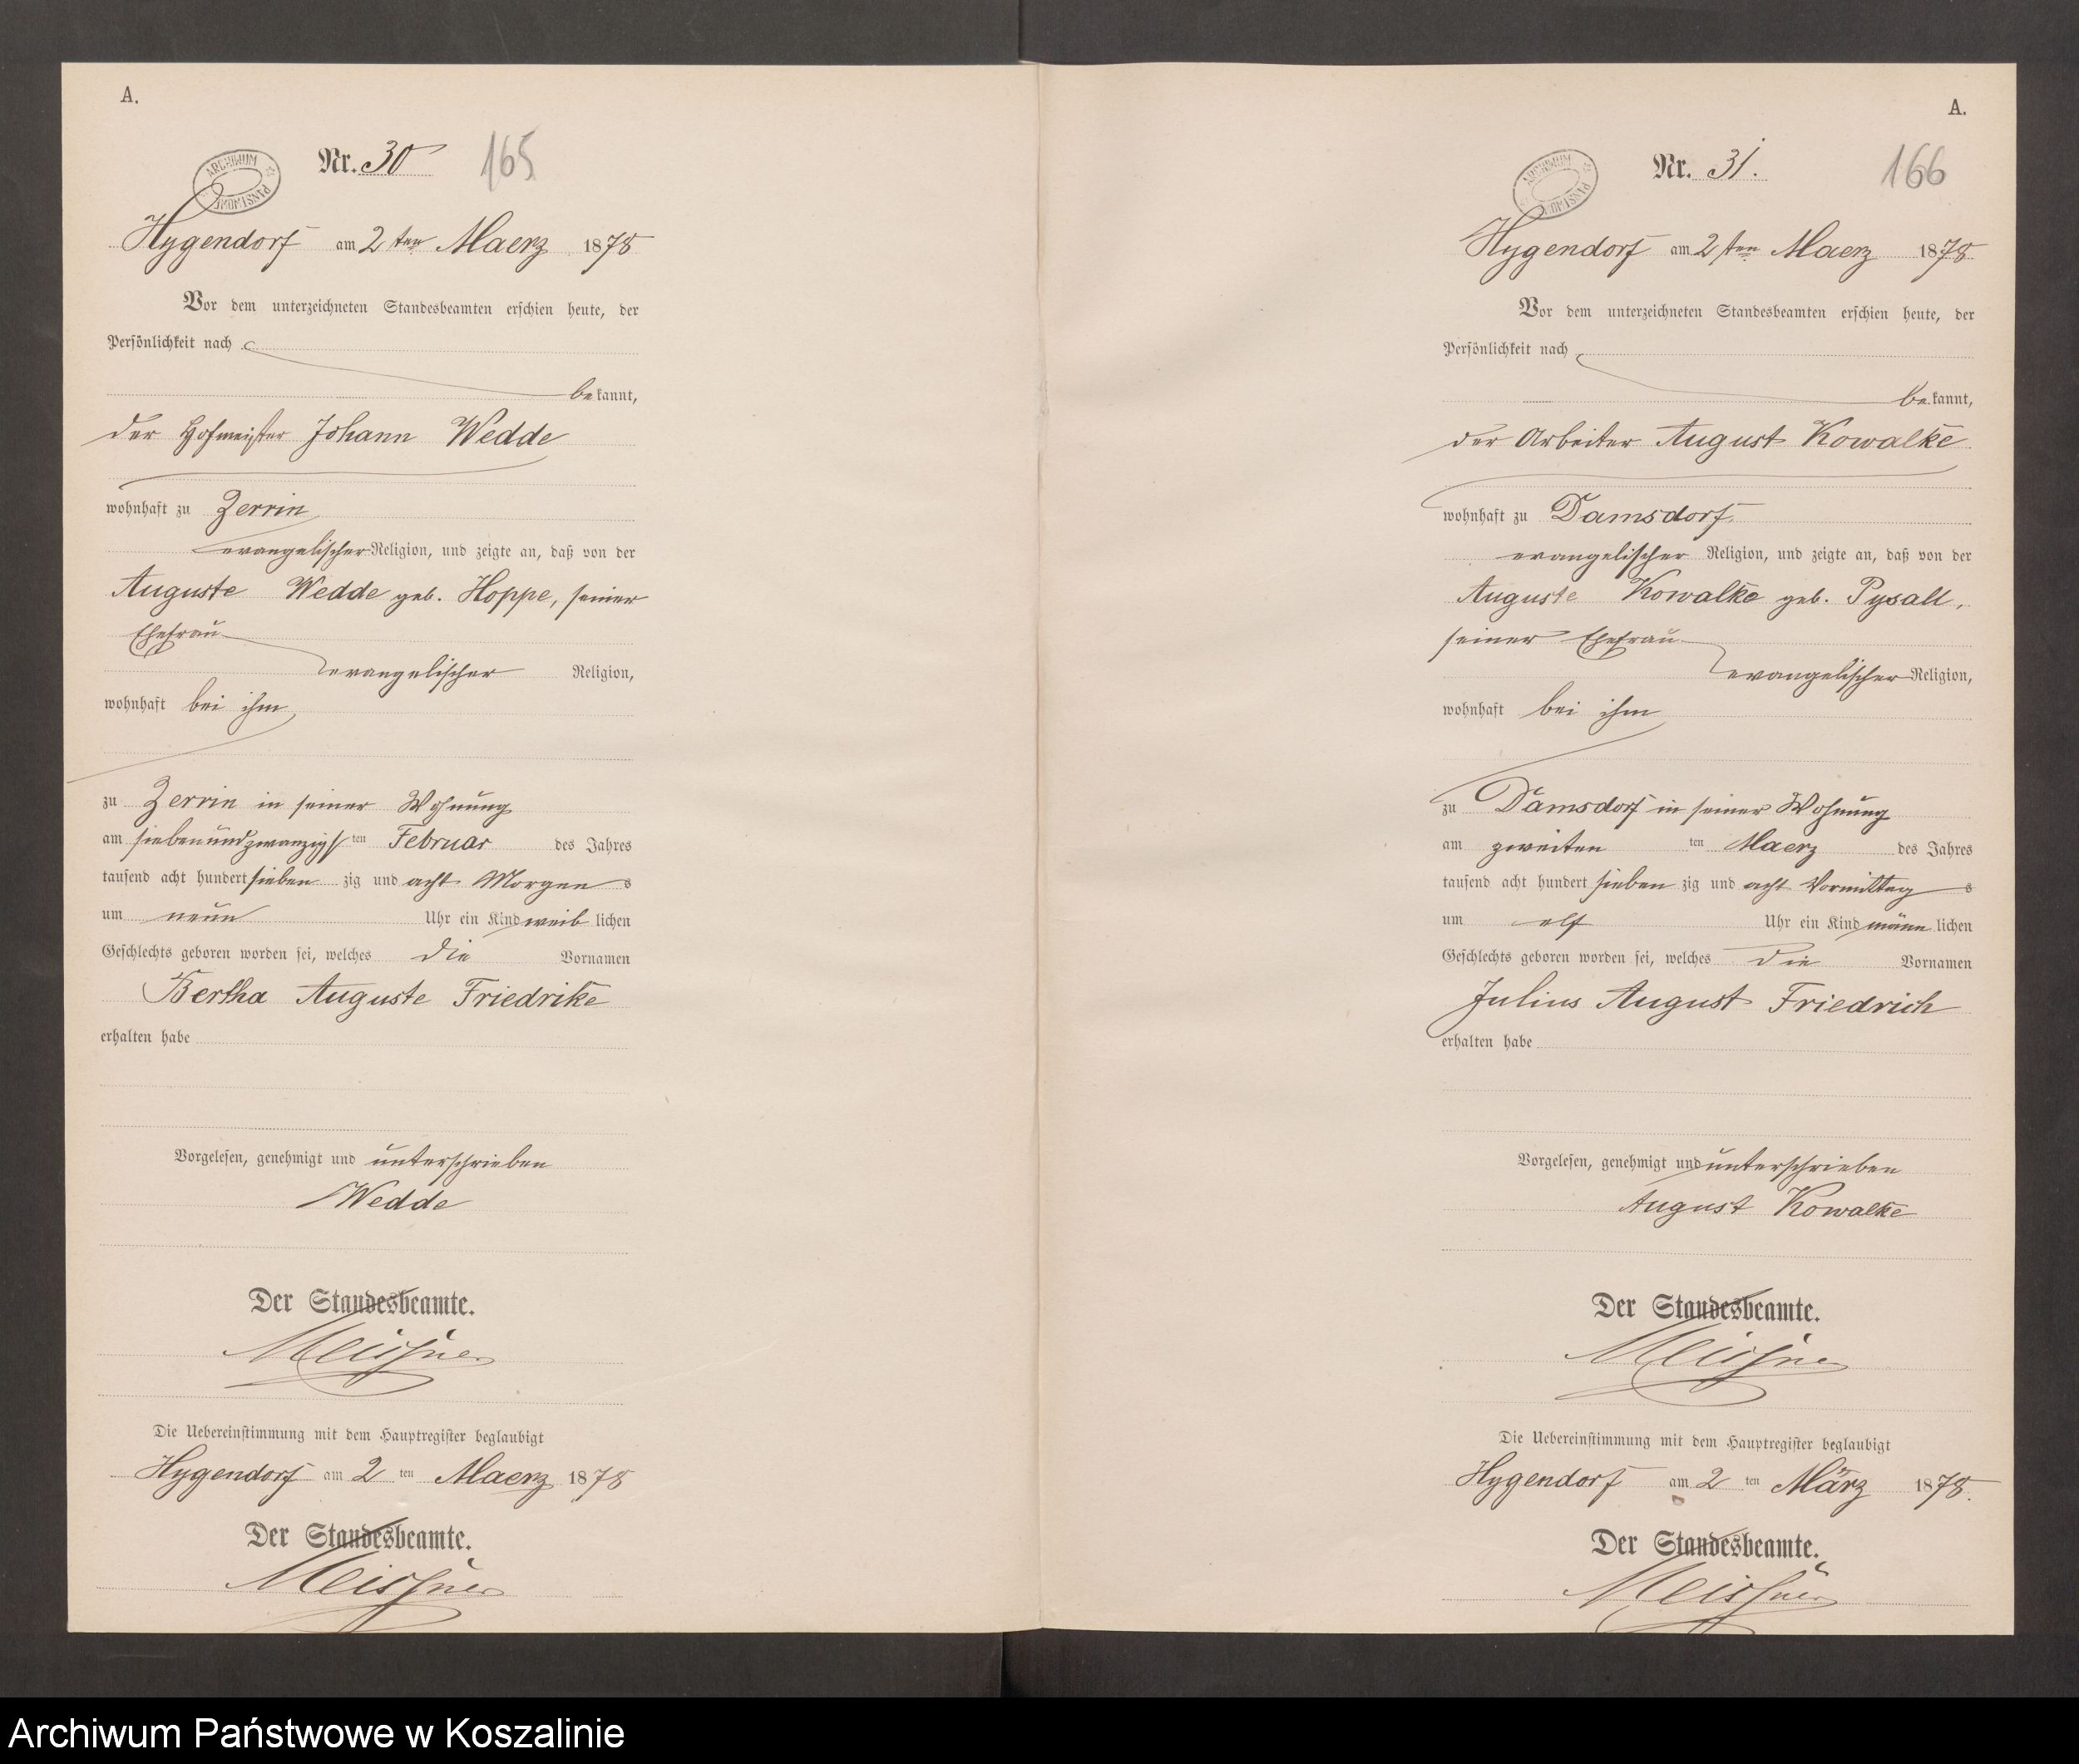 A.
ARCHIWUM PAŃSTWOWE
Nr. 30 165
Hygendorf am 2ten Maerz 1878
Vor dem unterzeichneten Standesbeamten erschien heute, der
Persönlichkeit nach
bekannt,
der Hofmeister Johann Wedde
wohnhaft zu Zerrin
evangelischer Religion, und zeigte an, daß von der
Auguste Wedde geb. Hoppe, seiner
Ehefrau
evangelischer Religion,
wohnhaft bei ihm
zu Zerrin in seiner Wohnung
am siebenundzwanzigsten Februar des Jahres
tausend acht hundert siebenzig und acht Morgens
um neun Uhr ein Kind weiblichen
Geschlechts geboren worden sei, welches die Vornamen
Bertha Auguste Friedrike
erhalten habe
Vorgelesen, genehmigt und unterschrieben
Wedde
Der Standesbeamte.
Meissner
Die Uebereinstimmung mit dem Hauptregister beglaubigt
Hygendorf am 2ten Maerz 1878
Der Standesbeamte.
Meissner
A.
ARCHIWUM PAŃSTWOWE
Nr. 31. 166
Hygendorf am 2ten Maerz 1878
Vor dem unterzeichneten Standesbeamten erschien heute, der
Persönlichkeit nach
bekannt,
der Arbeiter August Kowalke
wohnhaft zu Damsdorf
evangelischer Religion, und zeigte an, daß von der
Auguste Kowalke geb. Pysall,
seiner Ehefrau
evangelischer Religion,
wohnhaft bei ihm
zu Damsdorf in seiner Wohnung
am zweiten ten Maerz des Jahres
tausend acht hundert siebenzig und acht Vormittags
um elf Uhr ein Kind männlichen
Geschlechts geboren worden sei, welches die Vornamen
Julius August Friedrich
erhalten habe
Vorgelesen, genehmigt und unterschrieben
August Kowalke
Der Standesbeamte.
Meissner
Die Uebereinstimmung mit dem Hauptregister beglaubigt
Hygendorf am 2ten März 1878.
Der Standesbeamte.
Meissner
Archiwum Państwowe w Koszalinie